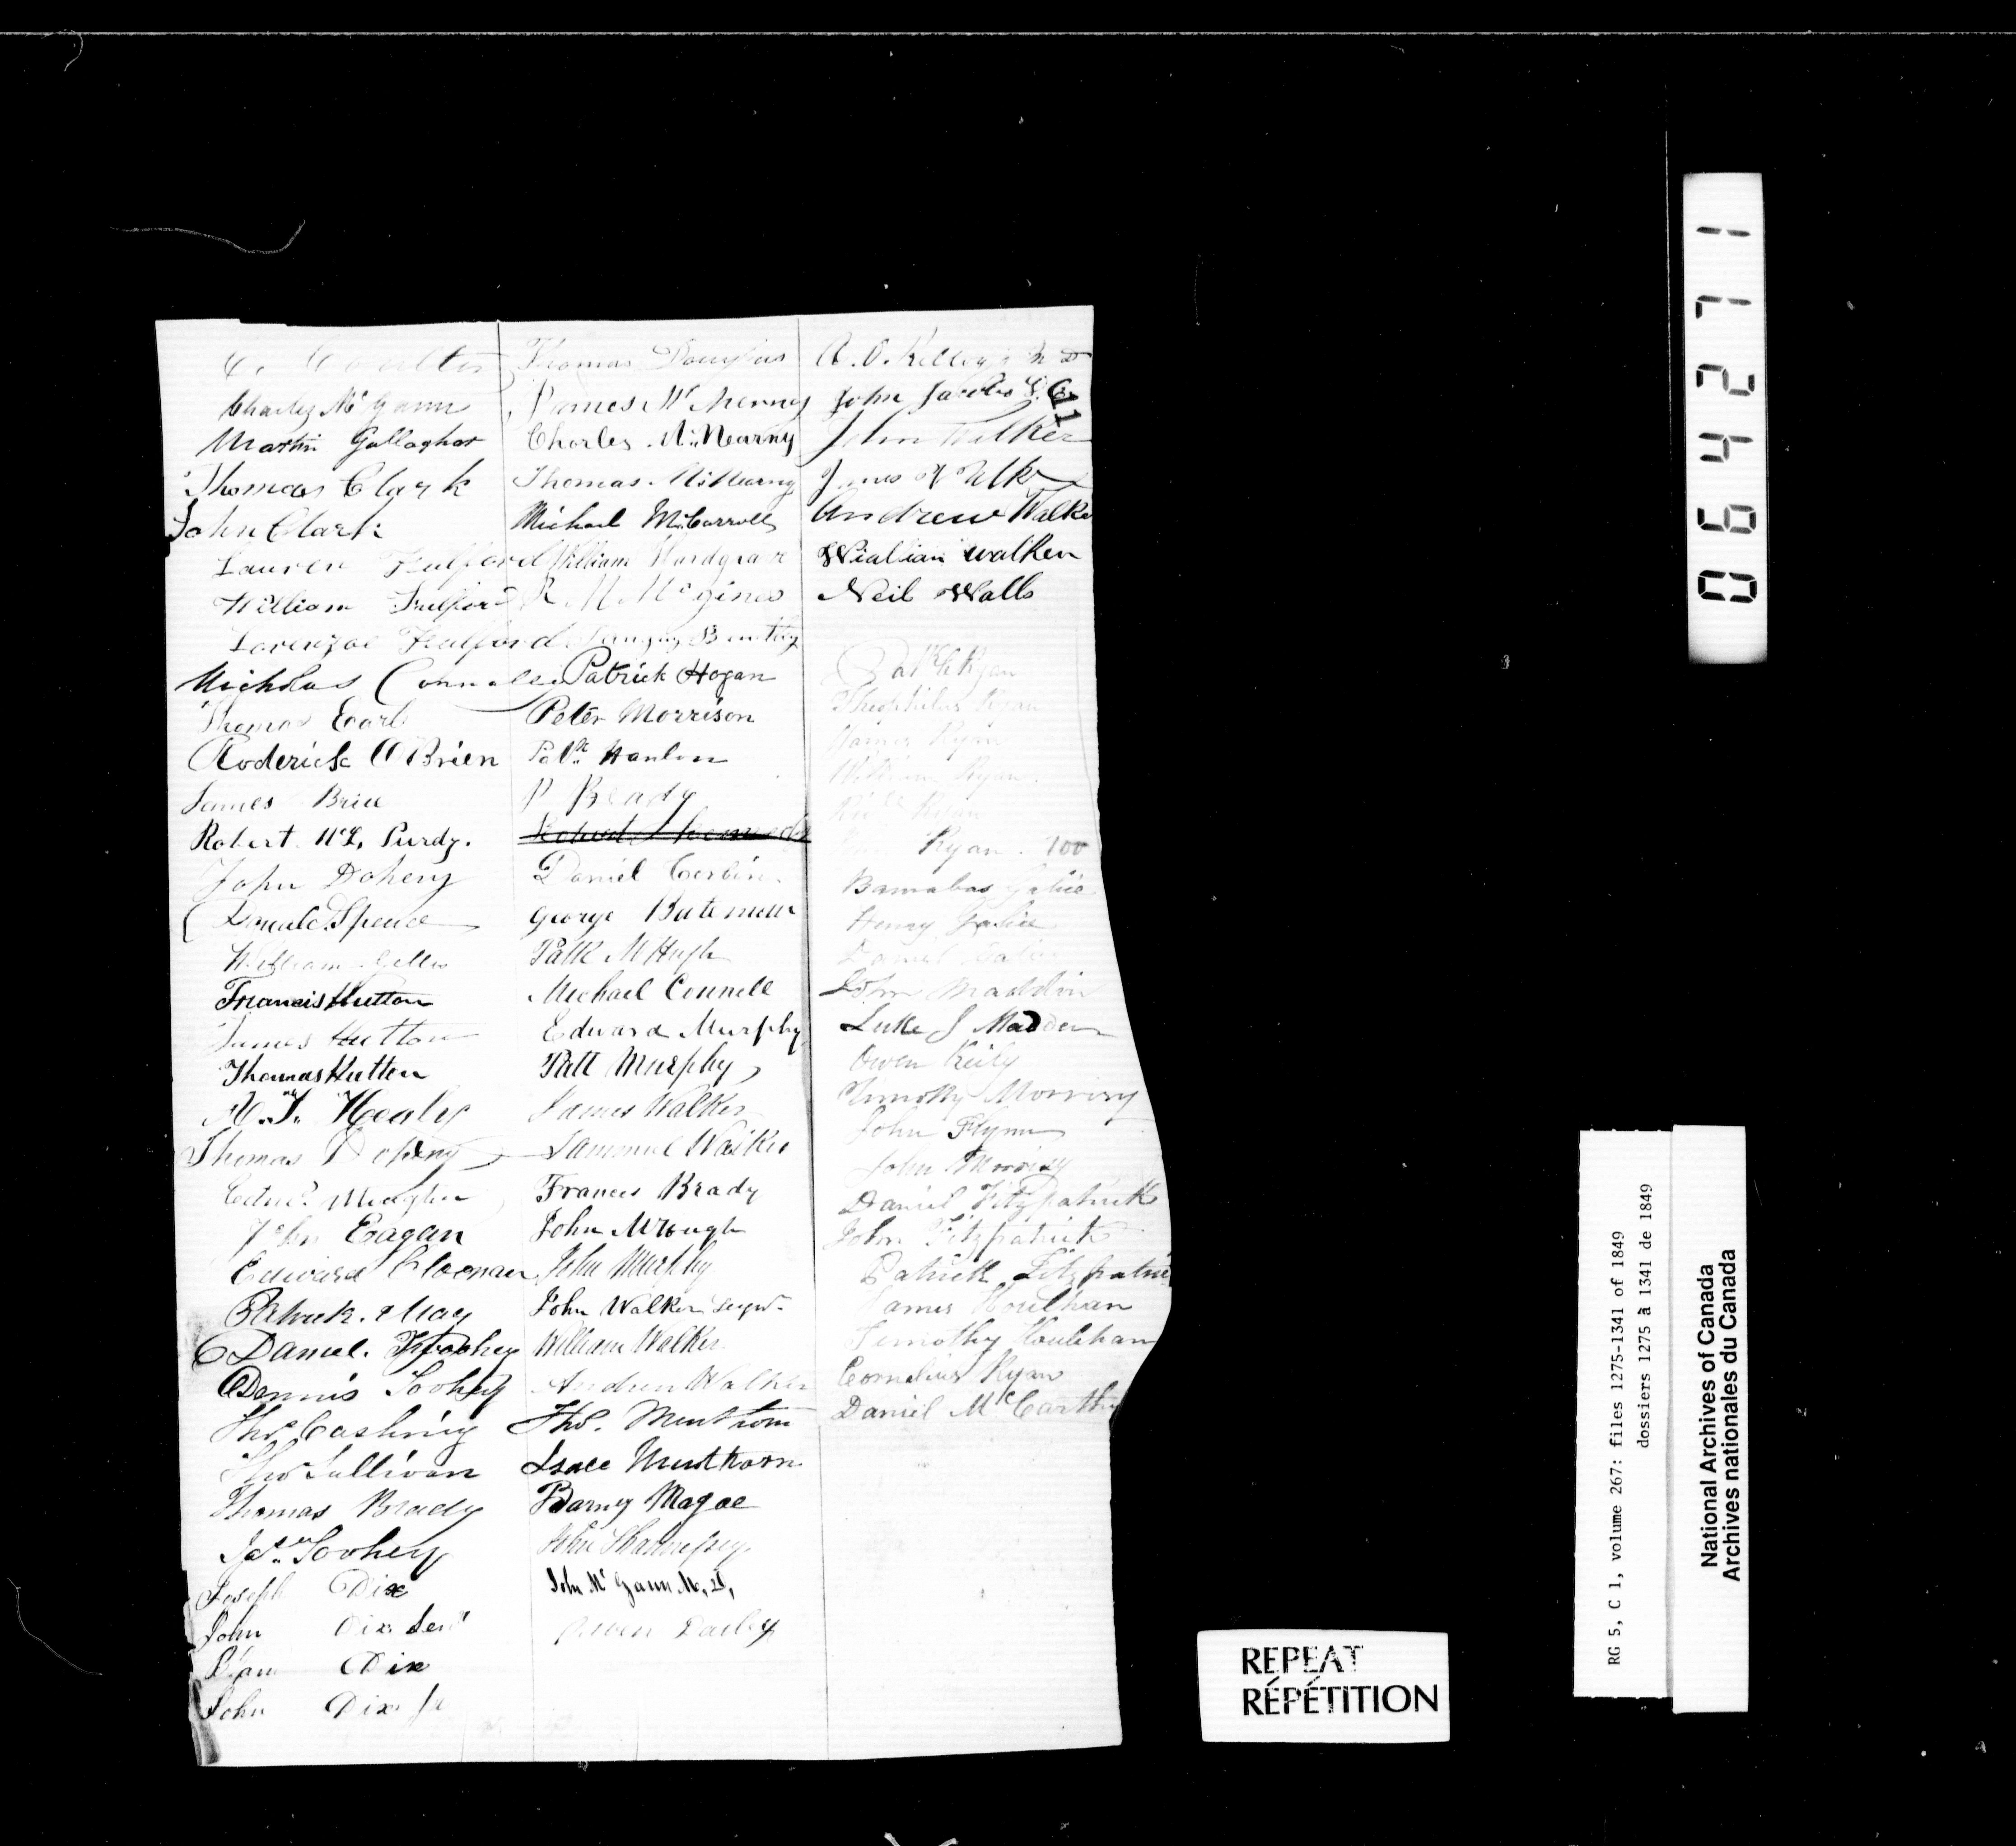 C. Coulter
Charles McGann
Martin Gallaghar
Thomas Clark
John Clark
Lauren Fulford
William Fulford
Lorenzoe Fulford
Nicholas
Thomas Earl
Roderick O'Brien
James Brice
Robert McL. Purdy.
John Doheny
Donald Spence
William Gillis
Francis Hutton
James Hutton
Thomas Hutton
Healy
Thomas
Meagher
John Eagan
Edward Cloonan
Patrick May
Daniel
Dennis Toohey
Thos. Cashing
Sullivan
Thomas Brady
Jas. Toohey
Joseph Dix
John Dix Senr
Dix
John Dix Jr
Thomas Douglas
James
Charles McNearny
Thomas McNearny
Michael McCarroll
William Hardgrave
R M McGines
Bentley
Patrick Hogan
Peter Morrison
Patk. Hanlon
P Brady
Daniel Corbin
George Bateman
Patk McHugh
Michael Connell
Edward Murphy
Patt Murphy
James Walker
Sammuel Walker
Frances Brady
John
John Murphy
John Walker
William Walker
Andrew Walker
Thos.
Isace
Barney Magee
John
John McGann M.D.
Owen Darby
A. O. Kellogg M D
John Jacobs
611
John Walker
James Walker
Andrew Walker
Wialian walken
Neil Walls
Patk Ryan
Theophilus Ryan
James Ryan
William Ryan.
Ryan
Ryan. 100
Barnabas Galvie
Henry Galvie
Daniel
John Maddin
Luke J Madden
Owen Keily
Timothy Morrisy
John Flynn
John Morrisy
Daniel Fitzpatrick
John Fitzpatrick
Patrick Fitzpatric
James Houlihan
Timothy Houlihan
Cornelius Ryan
Daniel McCarthy
064271
RG 5, C 1, volume 267: files 1275-1341 of 1849
dossiers 1275 à 1341 de 1849
National Archives of Canada
Archives nationales du Canada
REPEAT
RÉPÉTITION